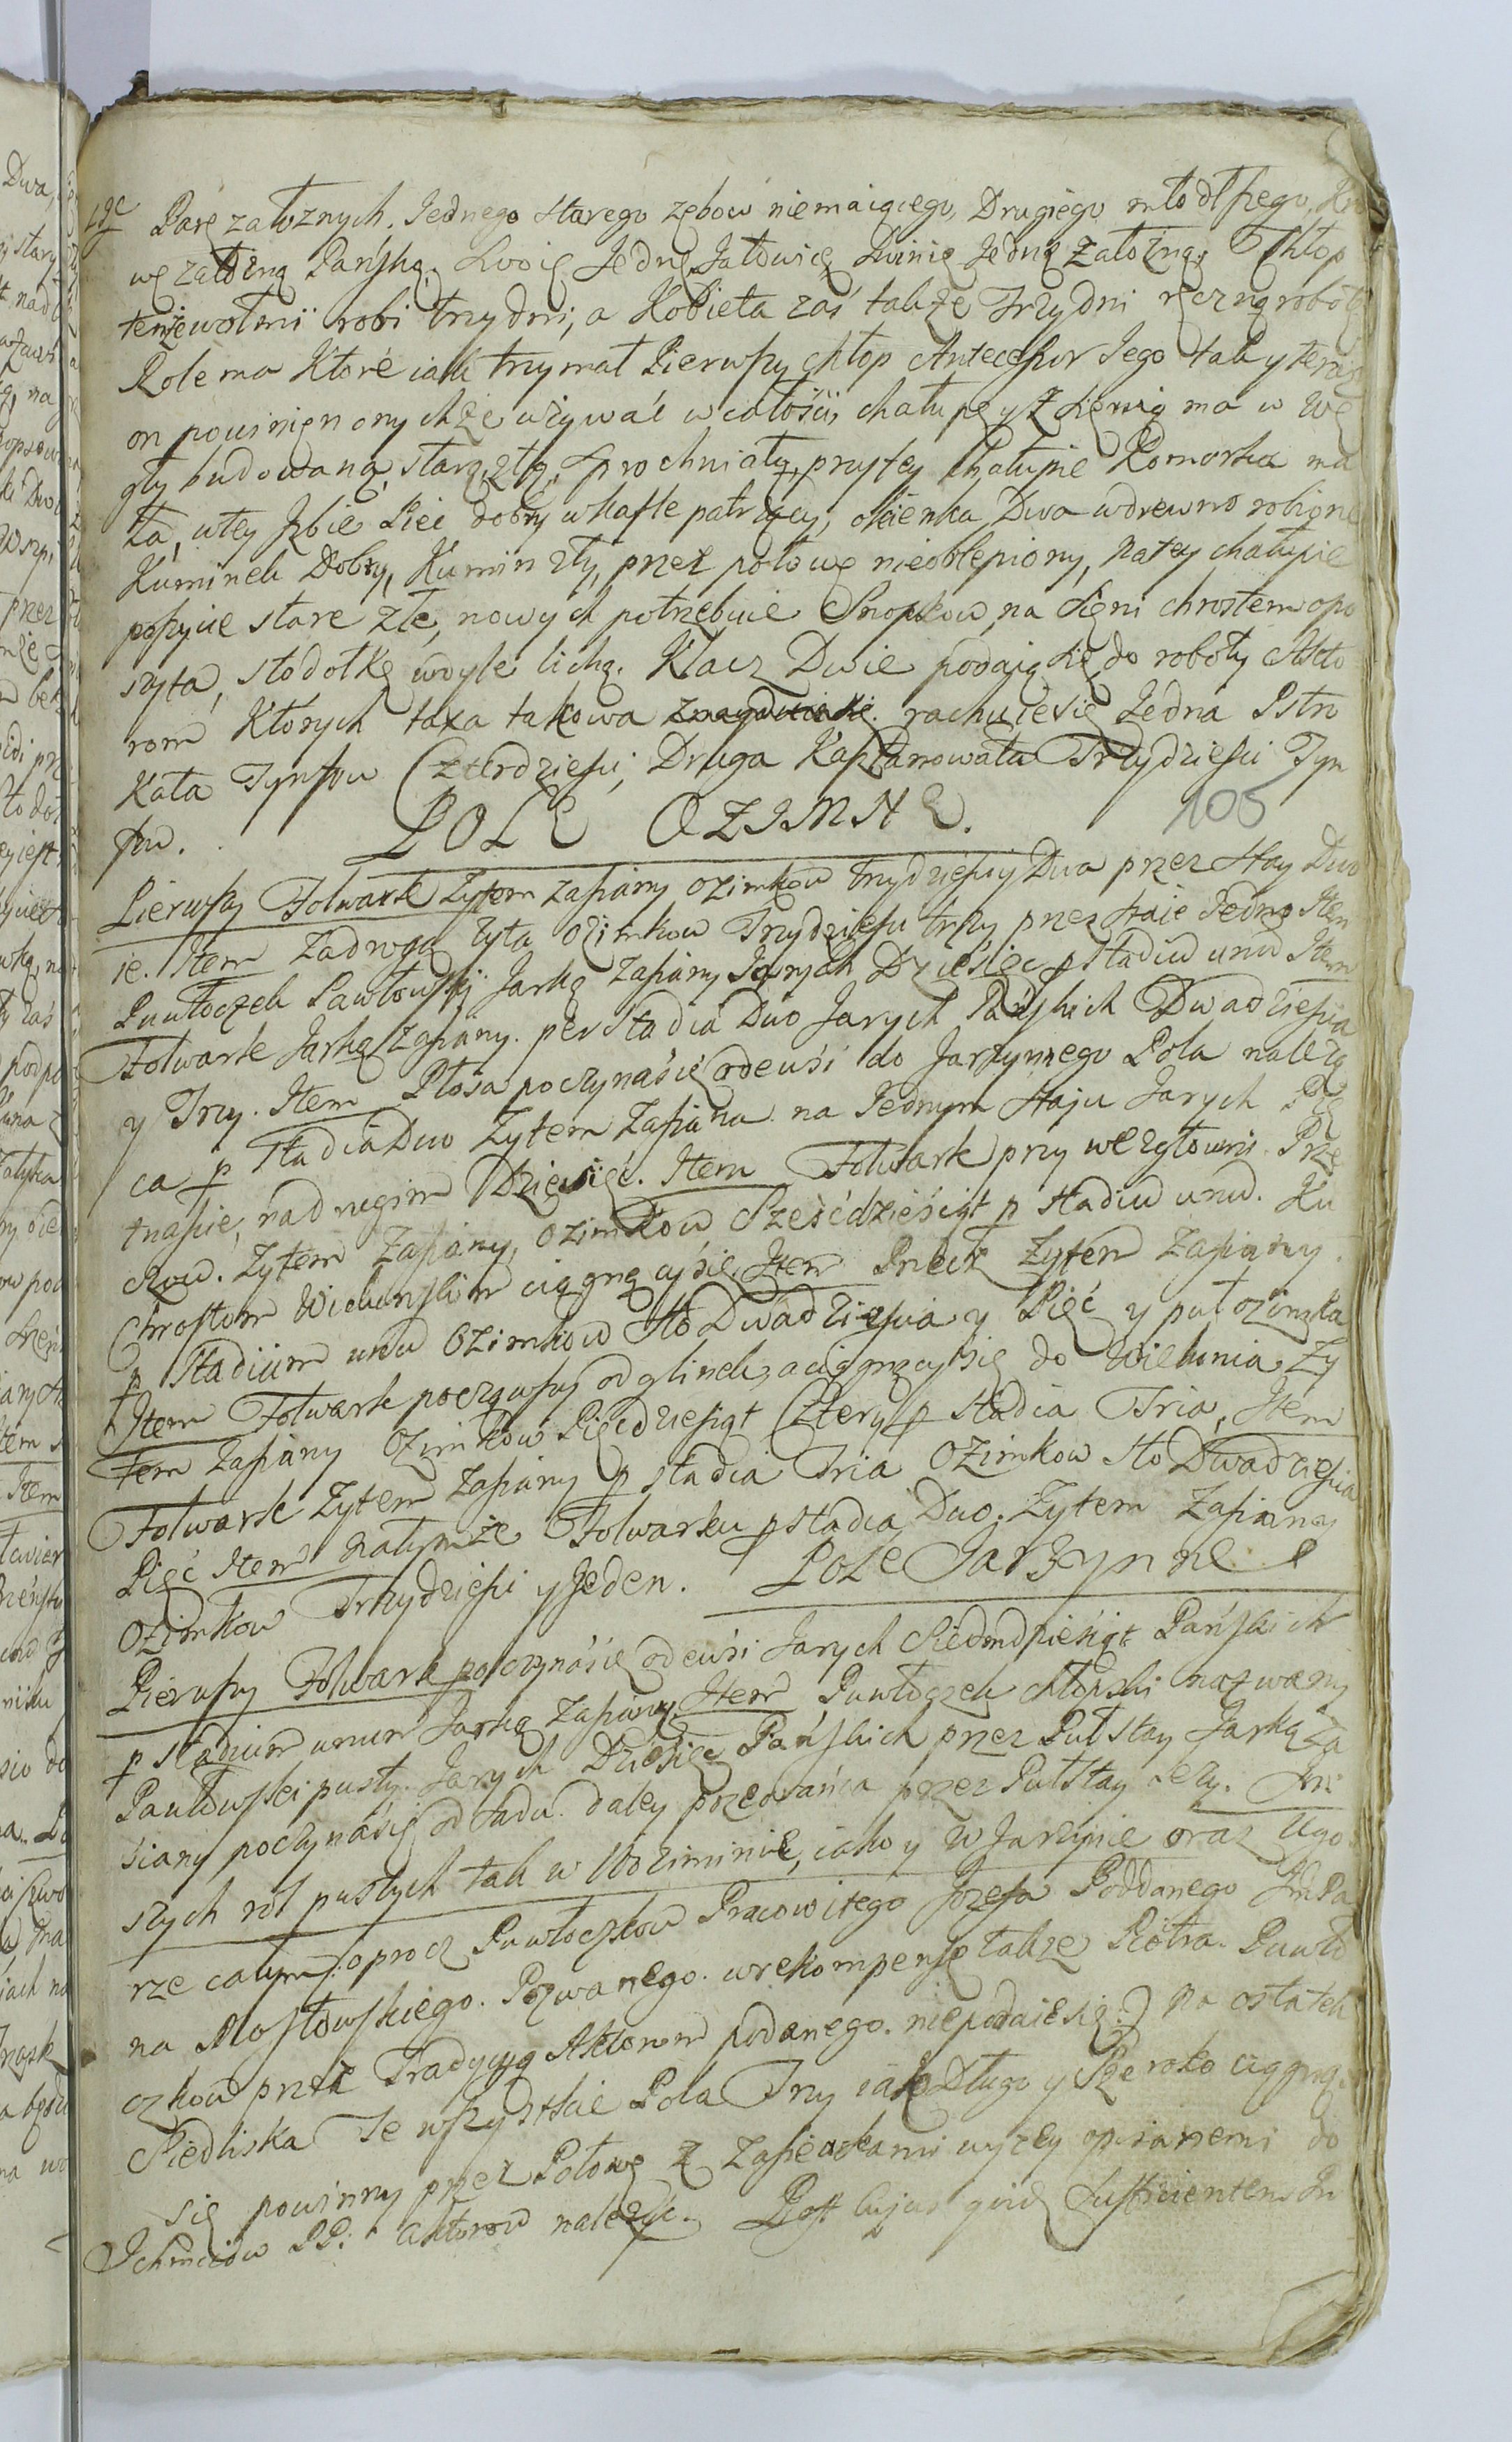 Parę załoznych. Jednego starego zębow niemaiącego, Drugiego młodszego, Kro
wę załozną Pańską. Swoię Jednę Jałowicę Swinię Jednę załozną, Chłop
tenże wołmi robi trzy dni, a Kobieta zaś także Trzy dni ręczną robotę
Role ma Ktore iak trzymał Pierwszy chłop Antecessor Jego tak y teraz
on powinien onychże uzywać w całości, chałupę y z sienią ma w Wę
gły budowaną, starą, złą, sprochniałą, przy tey Chałupie Komorka ma
ła, w tey Jzbie Piec dobry w kafle patrzący, okienka Dwa w drewno robione
Kuminek Dobry, Kumin zły, przez połowę nieoblepiony, na tey chałupie
poszycie stare złe, nowych potrzebuie Snopkow, na sieni chrostem opo
szyta, stodołkę woyle lichą. Klacz Dwie podaią się do roboty Akto
rom Ktorych taxa takowa znayduie się rachuie się Jedna Stro
kata Tynfow Czterdzieści, Druga Kasztanowata Trzydzieści Tyn
fow. POLE OZIMNE. 105
Pierwszy Folwark Zytem zasiany ozimkow trzydzieści y Dwa przez Stay Dwo
ie. Item Zadrogą zyta ozimkow Trzydzieści trzy przez staie Jedno Item
Puwłoczek Pawłowski Jarką zasiany Jarych Dziesięć p Stadiu unu Item
Folwark Jarką zasiany. per Stadia Duo Jarych Pańskich Dwadzieścia
y Trzy. Item Płosa poczyna się odewsi do Jarzynnego Pola należą
ca p Stadia Duo Zytem zasiana na Jednym Staju Jarych Pię
tnaście, na drugim Dziesięć. Item Folwark przy wezgłowni Prę
czow. Zytem Zasiany, ozimkow Sześćdziesiąt p Stadiu unu. Ku
Chrostom Wielunskim ciągnący się. Item Zytem Zasiany
p Stadium unu Ozimkow Sto Dwadzieścia y Pięć y puł ozimka
Item Folwark począwszy od glinek, a ciągnący się do Wielunia Zy
tem Zasiany Ozimkow Pięćdziesiąt Cztery p Stadia Tria, Item
Folwark Zytem Zasiany p stadia Tria Ozimkow Sto Dwadzieścia
Pięć Item natymże Folwarku p Stadia Duo. Zytem Zasiany
Ozimkow Trzydzieści y Jeden. Pole Jarzynne
Pierwszy Folwark poczyna się odewsi Jarych Siedmdziesiąt Pańskich
p Stadium unum Jarką Zasiany, Item Puwłoczek chłopski nazwany
Pawłowski pusty. Jarych Dziesięć Pańskich przez Puł Stay Jarką Za
siany poczyna się od Sadu. daley przez Puł Stay leży. In:
szych rol pustych tak w Woziminie, iako y w Jarzynie oraz Ugo
rze całym /: oprocz Puwłoczkow Pracowitego Jozefa Poddanego Im Pa
na Mosłowskiego. Pozwanego. w rekompensę także Piotra. Puwło
czkow przez Tradycyą Aktorom podanego. niepodaie się :/ Na ostatek
Siedliska Te wszystkie Pola Trzy iako Długo y Szeroko ciągną
się powinny przez Połowę z Zasiewkami wyżey opisanemi do
Ichmciow PP: Aktorow należyć. Post cujus quid Sufficientem In